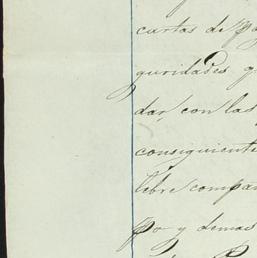 cartas de pa
guridades q
dar, con las
consiguiente
libre compar
po y demas